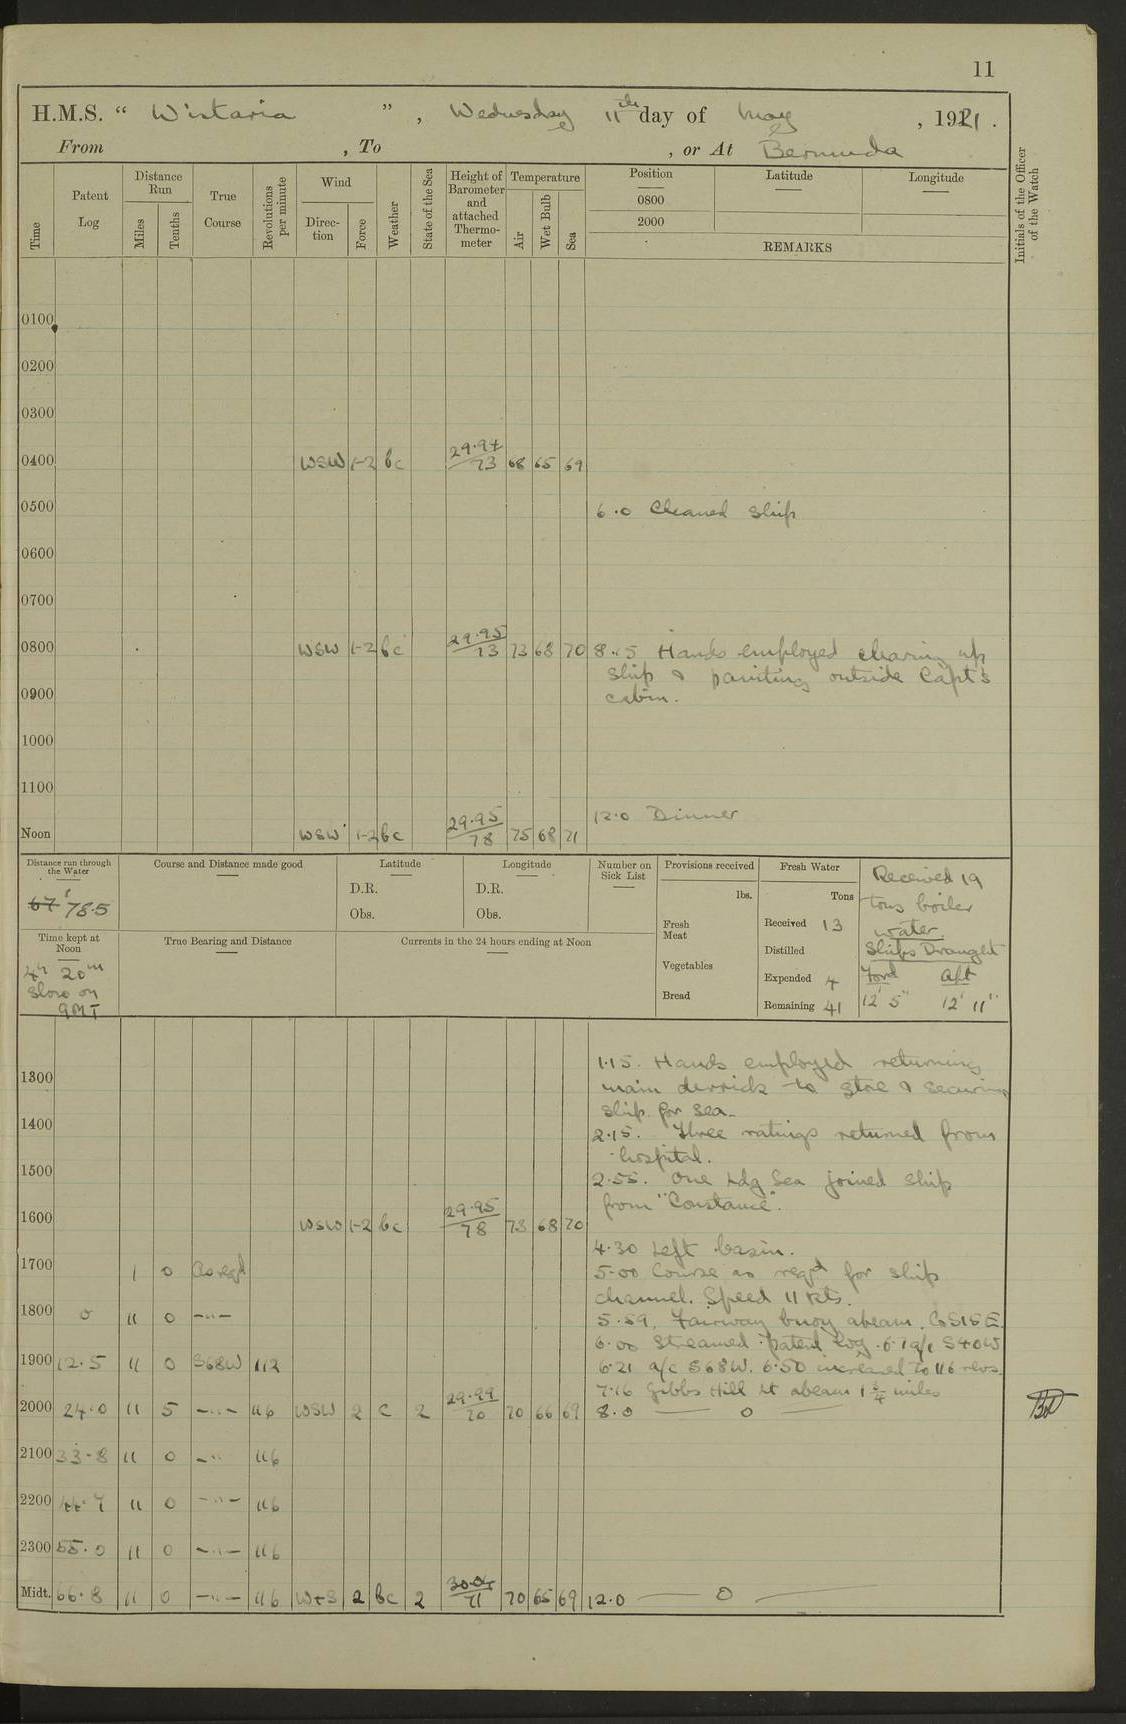 11
H.M.S. “ Wistaria ” , Wednesday 11th day of May , 1921 .
From , To , or At Bermuda
Time
Patent Log
Distance Run
Miles
Tenths
True Course
Revolutions per minute
Wind
Direction
Force
Weather
State of the Sea
Height of Barometer and attached Thermometer
Temperature
Air
Wet Bulb
Sea
Position
0800
2000
Latitude
Longitude
REMARKS
Initials of the Officer of the Watch
0100
0200
0300
0400 WSW 1-2 bc 29.94 73 68 65 69
0500
6.0 Cleaned ship
0600
0700
0800 WSW 1-2 bc 29.95 73 73 68 70 8.15 Hands employed clearing up
ship & painting outside Capt's
0900 cabin.
1000
1100
12.0 Dinner
Noon WSW 1-2 bc 29.95 78 75 68 71
Distance run through the Water
67.8 78.5
Course and Distance made good
Latitude
D.R.
Obs.
Longitude
D.R.
Obs.
Number on Sick List
Provisions received
lbs.
Fresh Meat
Vegetables
Bread
Fresh Water
Tons
Received 13
Distilled
Expended 4
Remaining 41
Received 19
tons boiler
water.
Ships Draught
Ford Aft
12' 5" 12' 11"
Time kept at Noon
4h 20m
slow on
GMT
True Bearing and Distance
Currents in the 24 hours ending at Noon
1.15. Hands employed returning
1300
main derrick to store & securing
ship for sea.
1400
2.15. Three ratings returned from
hospital.
1500
2.55. One Ldg Sea joined ship
from "Constance".
1600 WSW 1-2 bc 29.95 78 73 68 70
4.30 Left basin.
1700 1 0 As reqd
5.00 Course as reqd for ship
channel. Speed 11 kts.
1800 0 11 0 -"-
5.59. Fairway buoy abeam. Co S15E.
6.00 Streamed patent log. 6.7 a/c S40W
1900 12.5 11 0 S68W 112
6.21 a/c S68W. 6.50 increased to 116 revs.
7.16 Gibbs Hill Lt abeam 1 3/4 miles
2000 24.0 11 5 -"- 116 WSW 2 c 2 29.99 70 70 66 69 8.0 — 0 —
2100 33.8 11 0 -"- 116
2200 44.7 11 0 -"- 116
2300 55.0 11 0 -"- 116
Midt. 66.8 11 0 -"- 116 W+S 2 bc 2 30.01 71 70 65 69 12.0 — 0 —